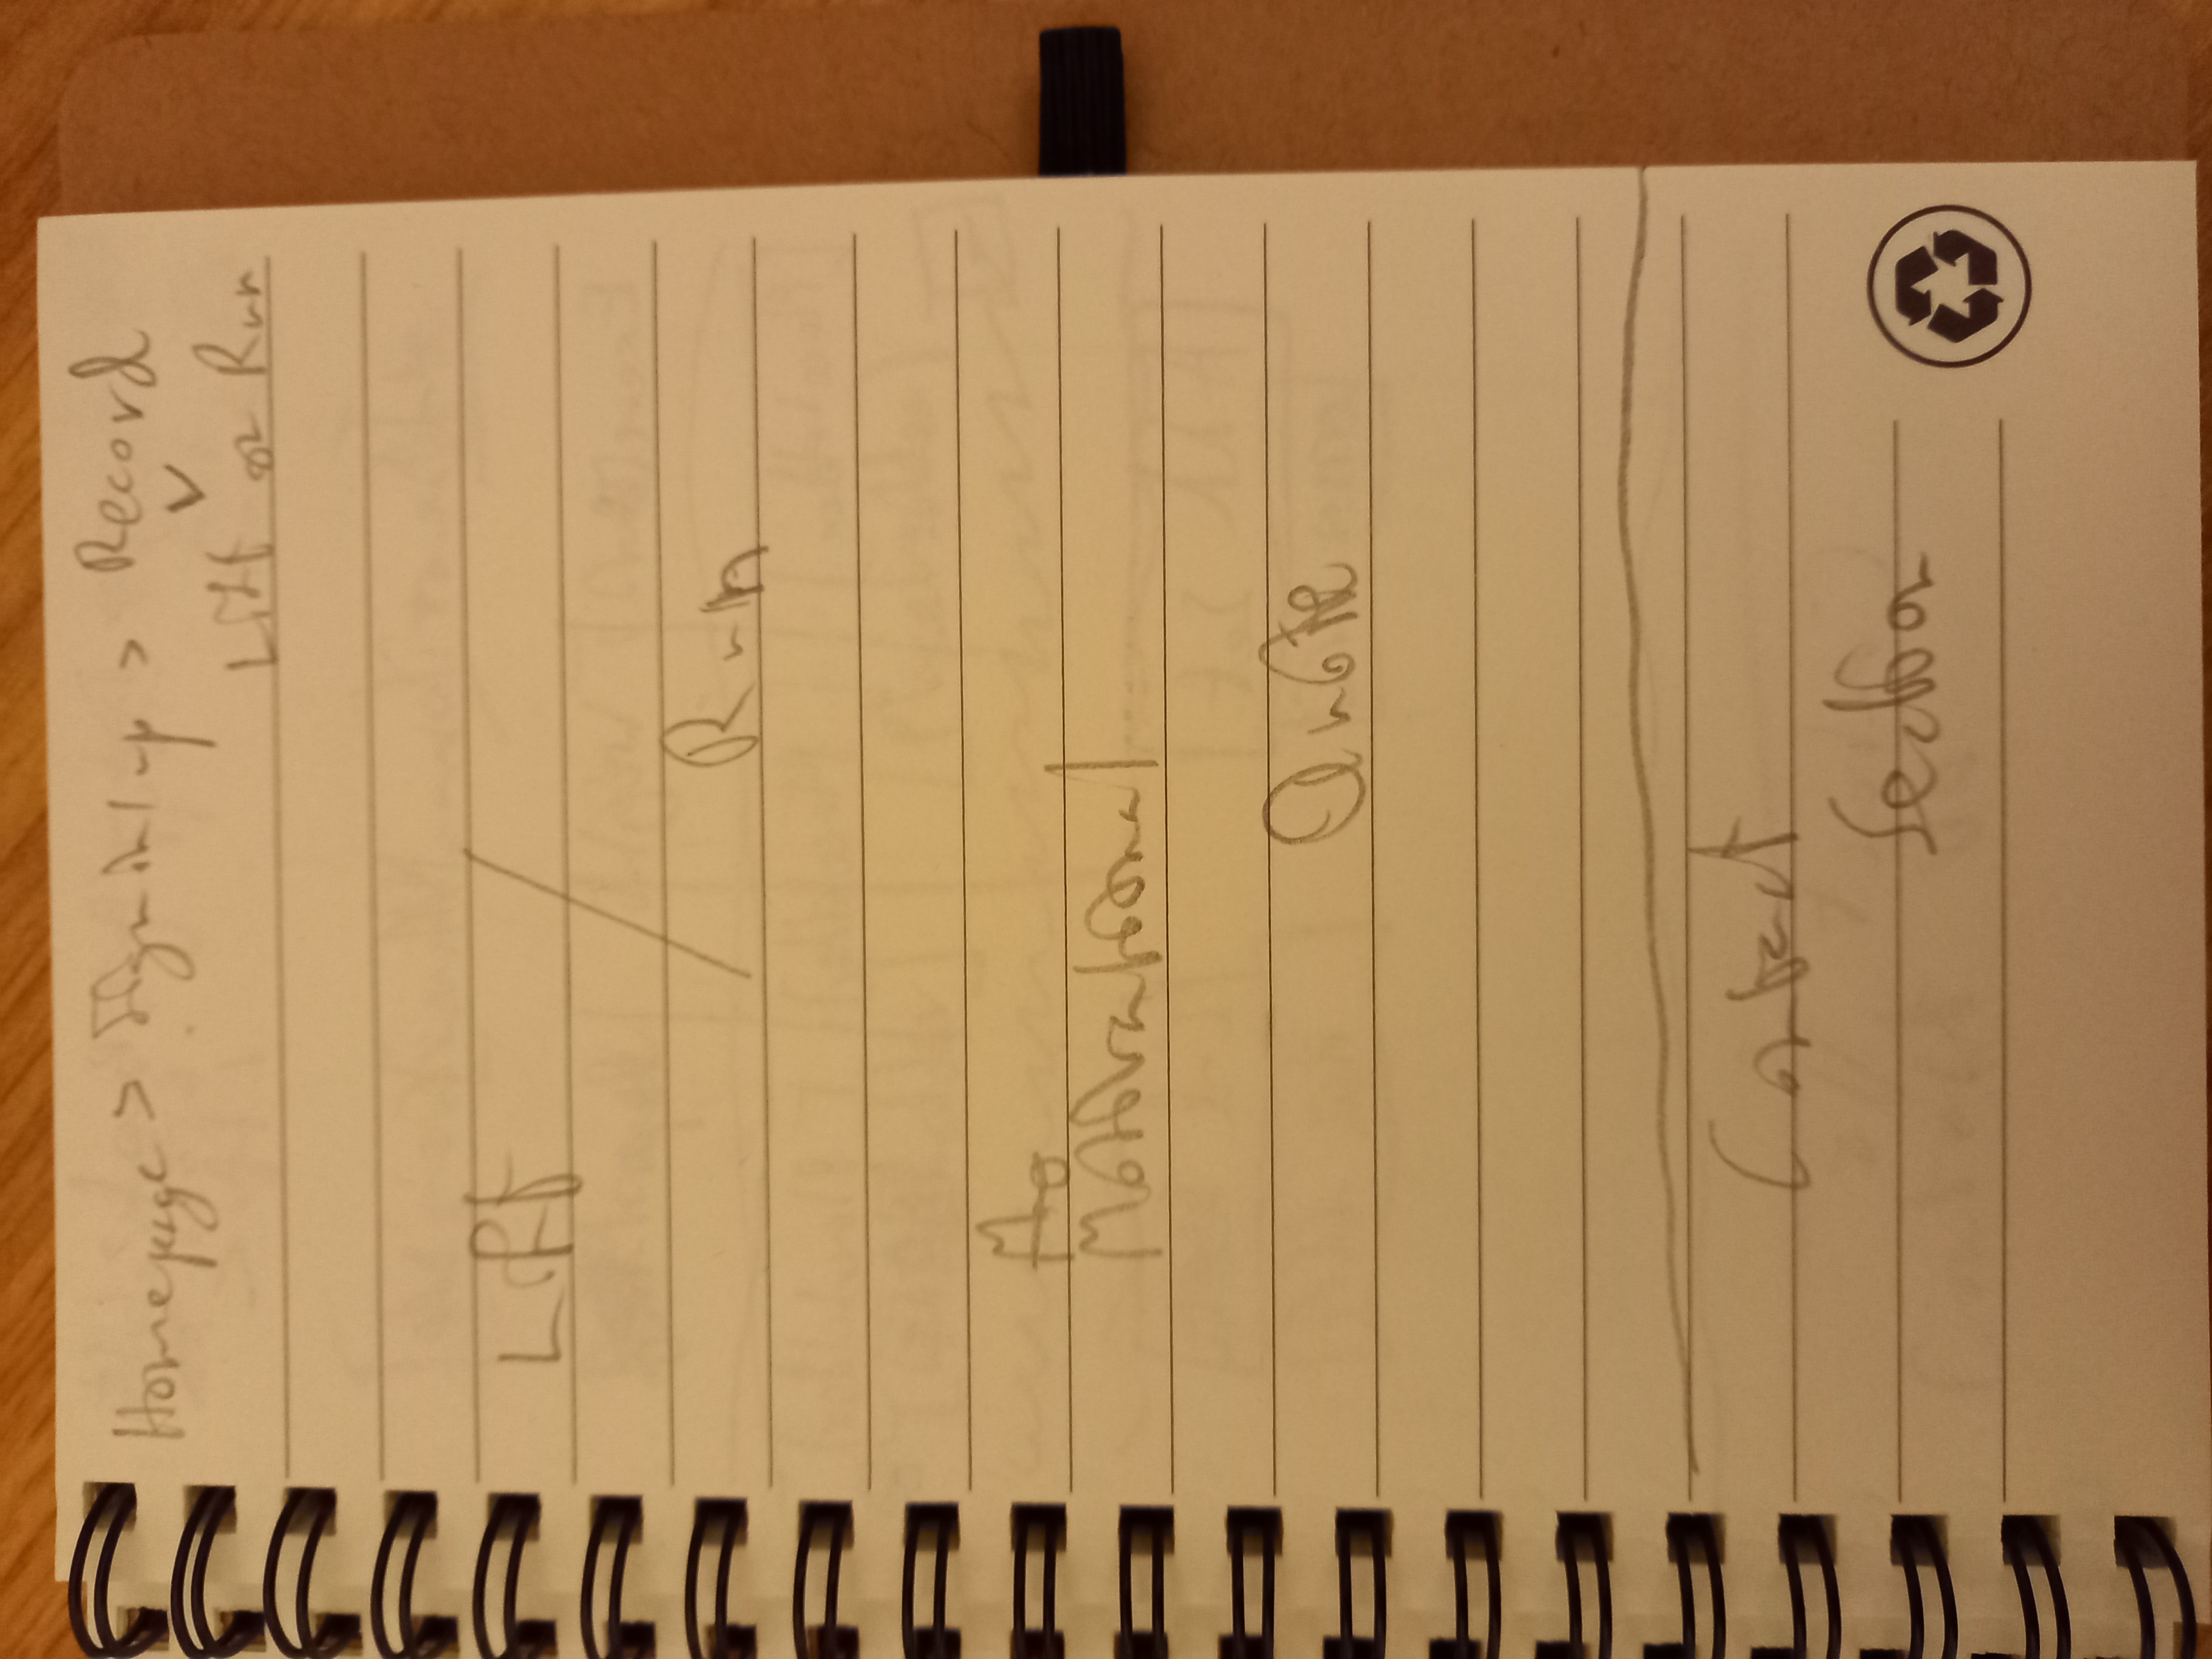 Homepage > Sign in/up > Record
Lift or Run
Lift / Run
Mo
Motivational
Quote
Contact
Section